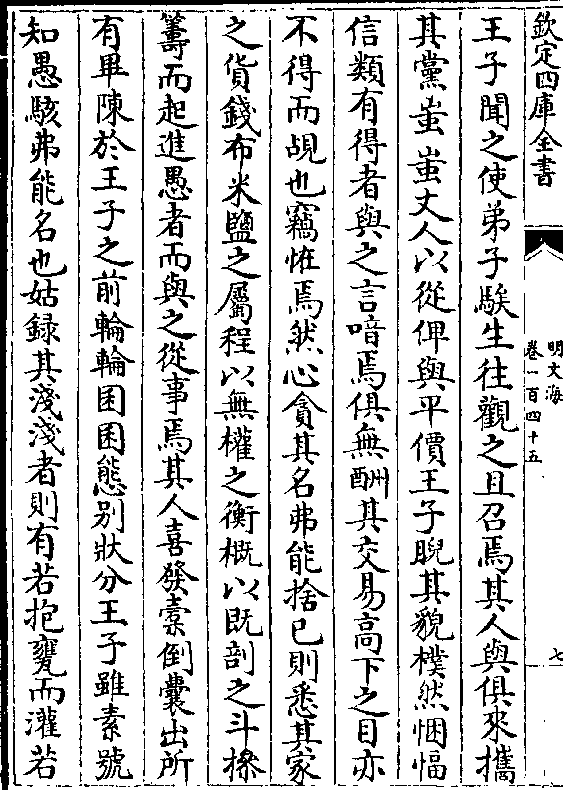 欽定四庫全書
明文海
卷一百四十五
七
王子聞之使弟子騃生往觀之且召焉其人與俱來攜
其黨蚩蚩丈人以從俾與平價王子睨其貌樸然悃愊
信類有得者與之言喑焉俱無酬其交易高下之目亦
不得而覘也竊怪焉然心貪其名弗能捨已則悉其家
之貨錢布米鹽之屬程以無權之衡概以既剖之斗操
籌而起進愚者而與之從事焉其人喜發橐倒囊出所
有畢陳於王子之前輪輪囷囷態别狀分王子雖素號
知愚駭弗能名也姑録其淺淺者則有若抱甕而灌若